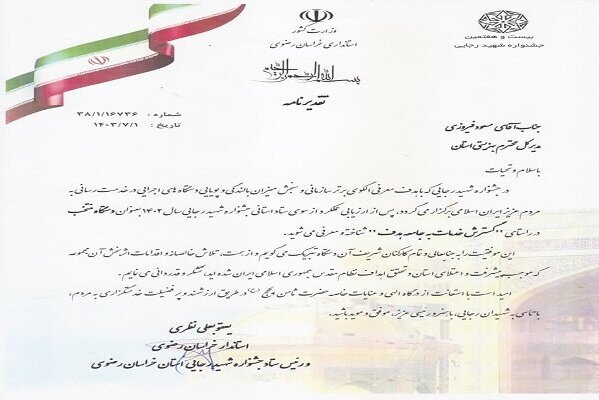 بیست و هفتمین
جشنواره شهید رجایی
وزارت کشور
استانداری خراسان رضوی
بسم الله الرحمن الرحیم
تقدیرنامه
شماره : ۳۸/۱/۱۶۷۳۶
تاریخ : ۱۴۰۳/۷/۱
جناب آقای مسعود فیروزی
مدیر کل محترم بهزیستی استان
با سلام و تحیات
در جشنواره شهید رجایی که با هدف معرفی الگوی برتر سازمانی و سنجش میزان بالندگی و پویایی دستگاه های اجرایی در خدمت رسانی به
مردم عزیز ایران اسلامی برگزار می گردد، پس از ارزیابی عملکرد از سوی ستاد استانی جشنواره شهید رجایی سال ۱۴۰۲ بعنوان دستگاه منتخب
در راستای "گسترش خدمات به جامعه هدف" شناخته و معرفی می شوید.
این موفقیت را به جنابعالی و تمام کارکنان شریف آن دستگاه تبریک می گویم و از همت، تلاش خالصانه و اقدامات اثربخش آن مجموعه
که موجب پیشرفت و اعتلای استان و تحقق اهداف نظام مقدس جمهوری اسلامی ایران شده اید، تشکر و قدردانی می نمایم.
امید است با استعانت از درگاه الهی و عنایات خاصه حضرت ثامن الحجج در طریق ارزشمند و پر فضیلت خدمتگزاری به مردم،
با تاسی به شهیدان رجایی، باهنر و رئیسی عزیز، موفق و موید باشید.
یعقوبعلی نظری
استاندار خراسان رضوی
و رئیس ستاد جشنواره شهید رجایی استان خراسان رضوی